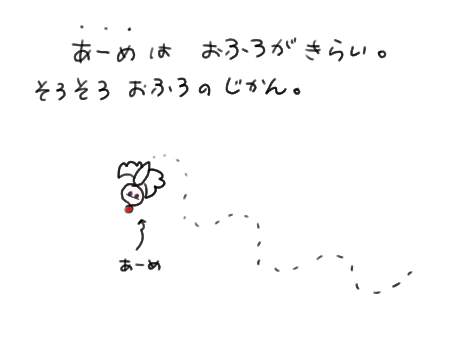 あーめは おふろがきらい。
そろそろ おふろの じかん。
あーめ